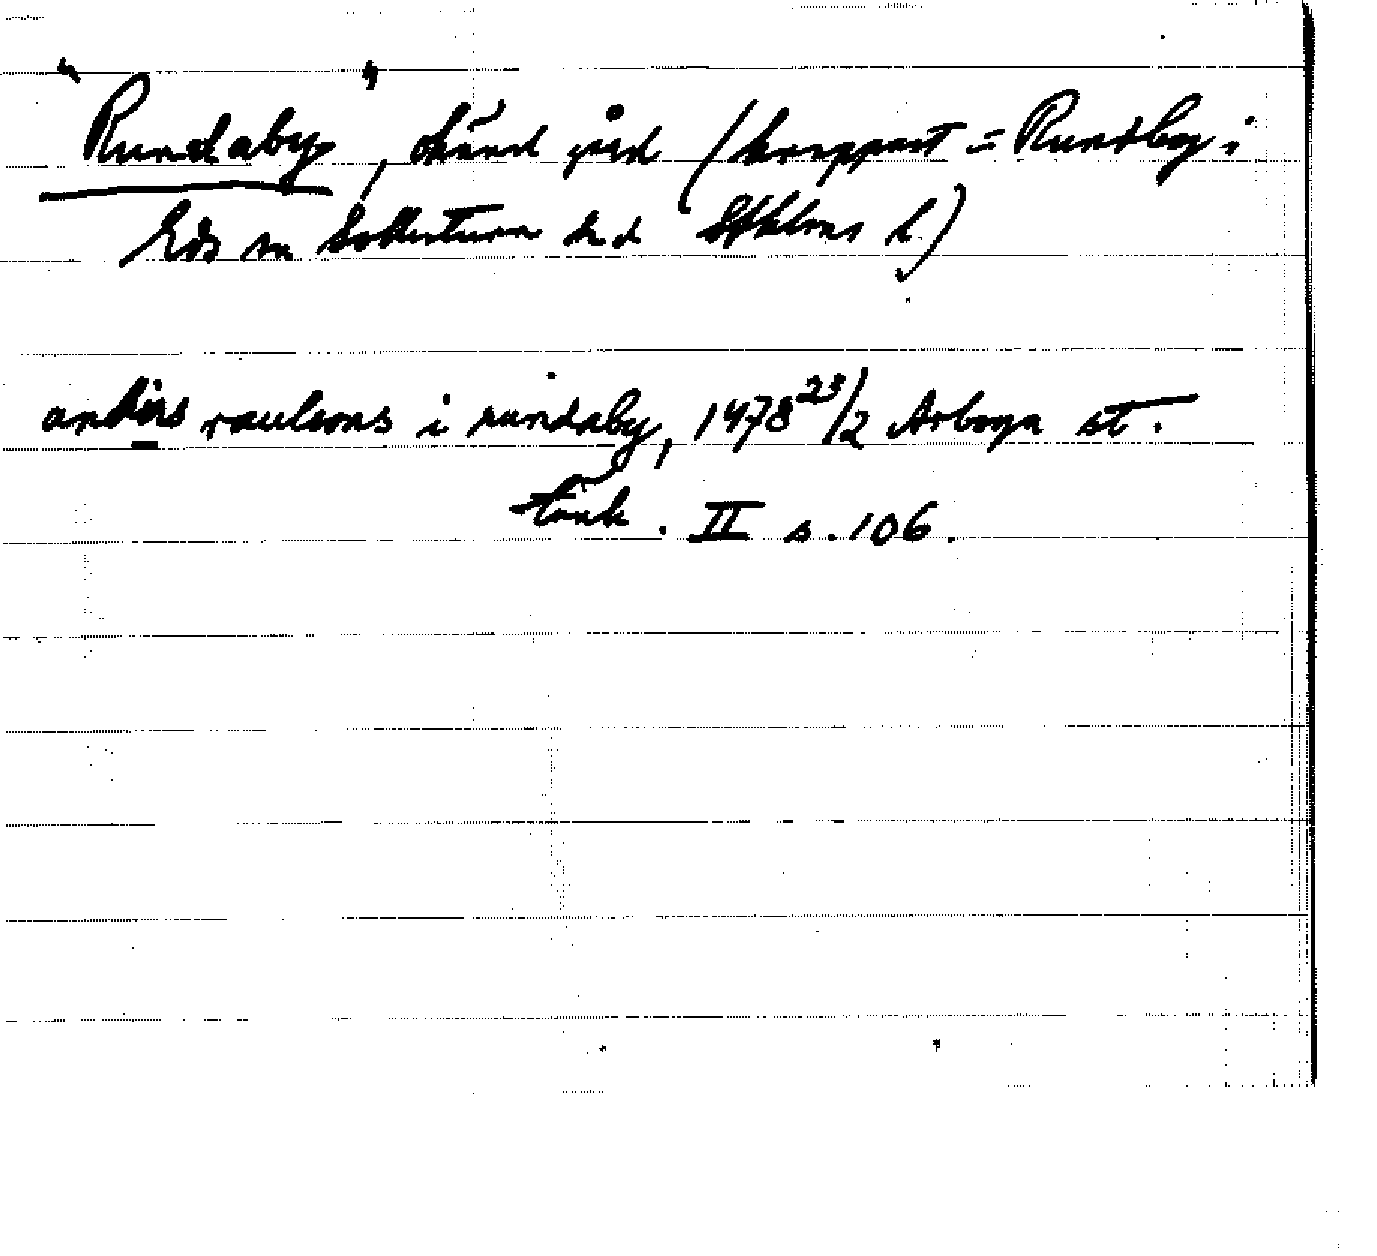 "Rundaby", okänd gård (knappast = Rundby i
Eds sn Sollentuna hd Sthlms l)
anders raulsons i rundaby, 1478 23/2 Arboga st.
tänk. II s. 106.